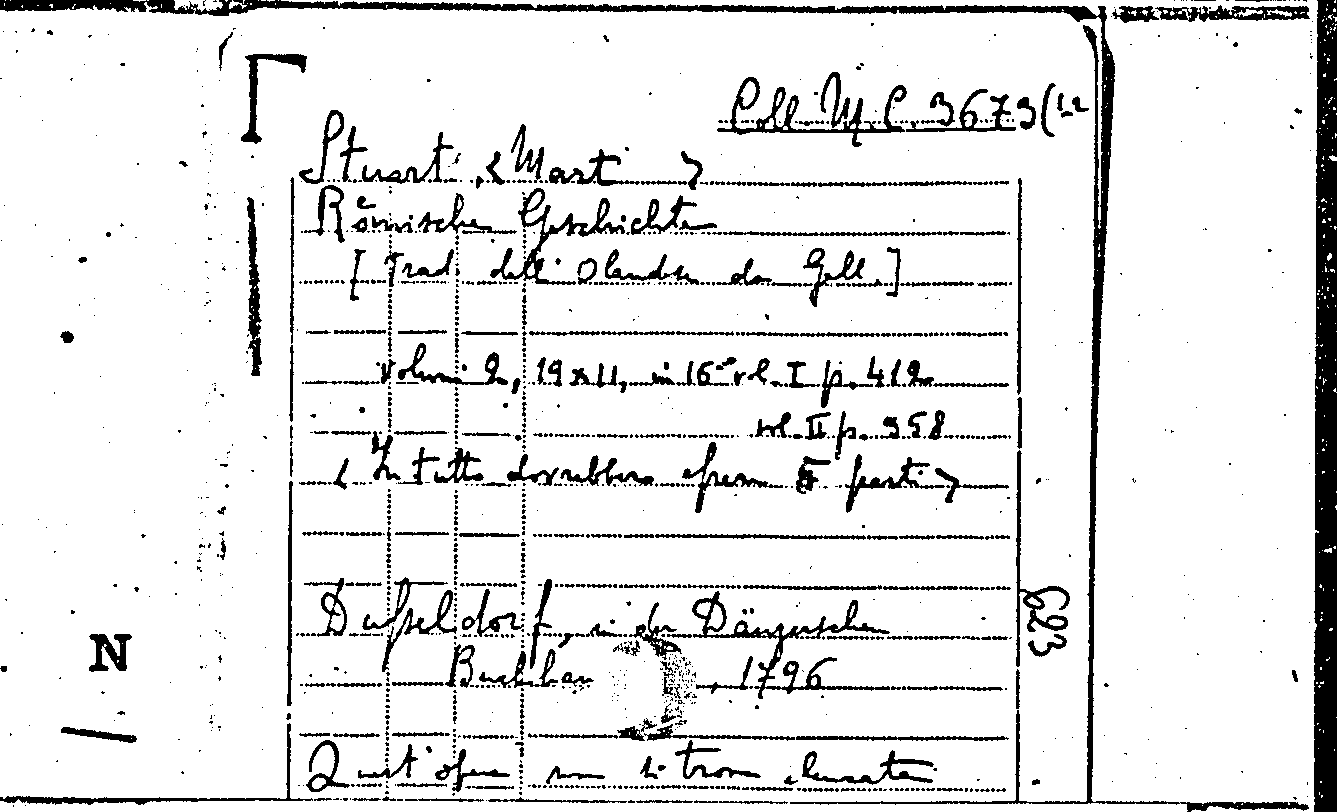 Coll. M. C. 3679 (12
Stuart, < Mart >
Römische Geschichte
[Trad. dall' Olandese da Gall.]
volumi 2, 19x11, in 16° vol. I p. 412
vol. II p. 358
< In tutto dovrebbero essere 5 parti >
623
Dusseldorf, in der Dänzerschen
N
Buchhan , 1796
Quest'opera non si trova